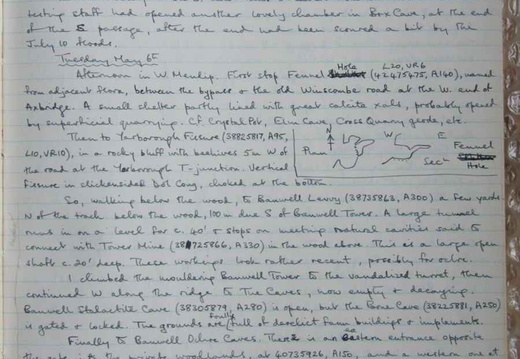 testing staff had opened another lovely chamber in Box Cave, at the end
of the S. passage, after the end had been scoured a bit by the
July 10 floods.
Tuesday May 6th
Afternoon in W Mendip. First stop Fennel Hole L20, VR6 (42475675, A140), named
from adjacent flora, between the bypass & the old Winscombe road at the W. end of
Axbridge. A small shelter partly lined with great calcite xals, probably opened
by superficial quarrying. Cf. Crystal Pot, Elm Cave, Cross Quarry geode, etc.
Then to Yarborough Fissure (38825817, A95,
L10, VR10), in a rocky bluff with beehives 5m W of
the road at the Yarborough T-junction. Vertical
Fissure in slickensided Dol Cong, choked at the bottom.
N
Plan
W
E
Sect
Fennel
Hole
So, walking below the wood, to Banwell Levvy (38735863, A300) a few yards
N of the track below the wood, 110m due S of Banwell Tower. A large tunnel
runs in on a level for c. 40' & stops on meeting natural cavities said to
connect with Tower Mine (38725866, A330) in the wood above. This is a large open
shaft c. 20' deep. These workings look rather recent, possibly for ochre.
I climbed the mouldering Banwell Tower to the vandalised turret, then
continued W along the ridge to The Caves, now empty & decaying.
Banwell Stalactite Cave (38205879, A280) is open, but the Bone Cave (38225881, A250)
is gated & locked. The grounds are finally full of derelict farm buildings & implements.
Finally to Banwell Ochre Caves. There is an eastern entrance opposite
the private woodlands, at 40735926, A150, and a western one at